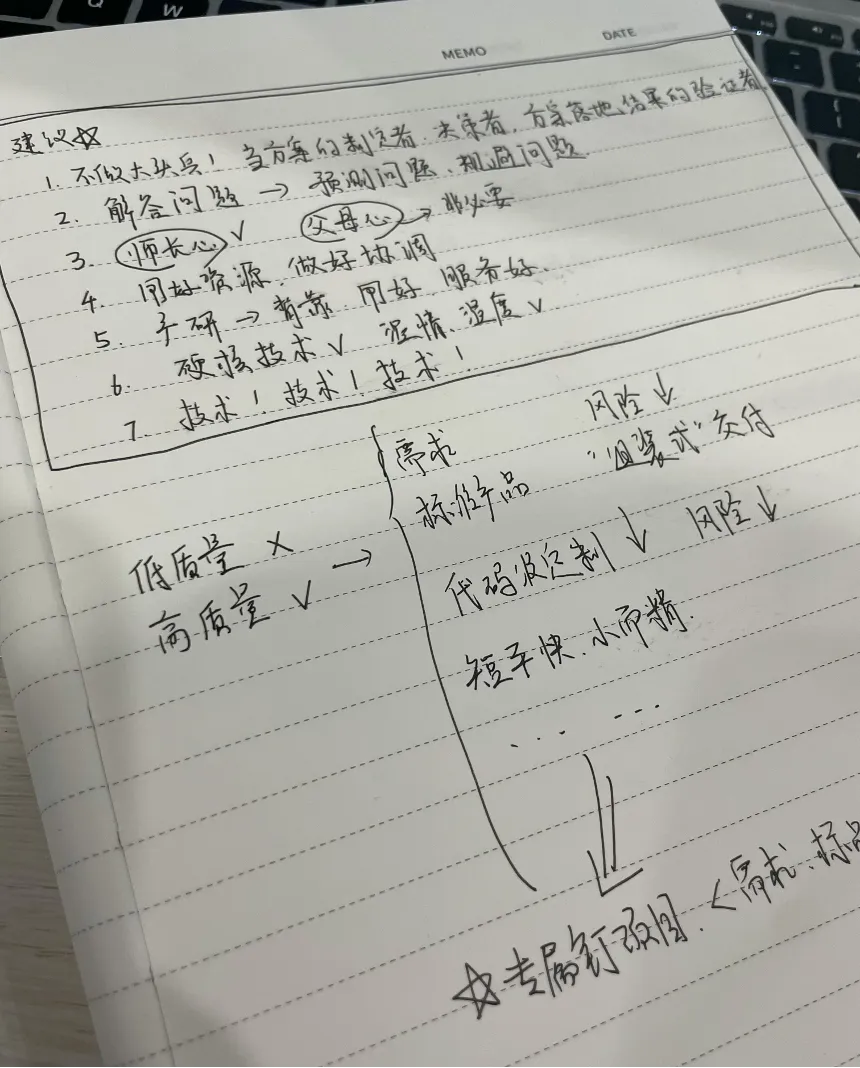 Q W
MEMO DATE
建议☆
1. 不做大头兵！当方案的制定者、决策者、方案落地、结果的验证者
2. 解答问题 → 预测问题、规避问题
3. 师长心 √ 父母心 → 非必要
4. 用好资源、做好协调
5. 产研 → 背靠 用好、服务好、
6. 硬核技术 √ 温情、温度 √
7. 技术！技术！技术！
需求 风险↓
标准产品 “组装式”交付
低质量 × →
高质量 √
代码级定制↓ 风险↓
短平快、小而精、
... ...
☆专属钉 < 需求、标品